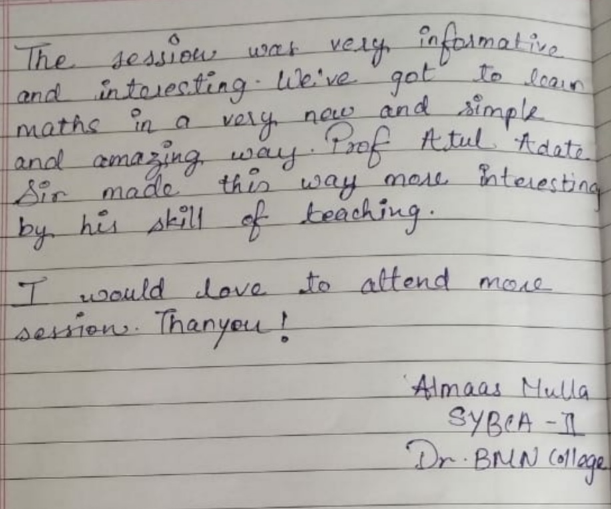 The session was very informative
and interesting. We've got to learn
maths in a very new and simple
and amazing way. Prof Atul Adate
Sir made this way more interesting
by his skill of teaching.
I would love to attend more
session. Thanyou!
Almaas Mulla
SYBCA - II
Dr. BMN College